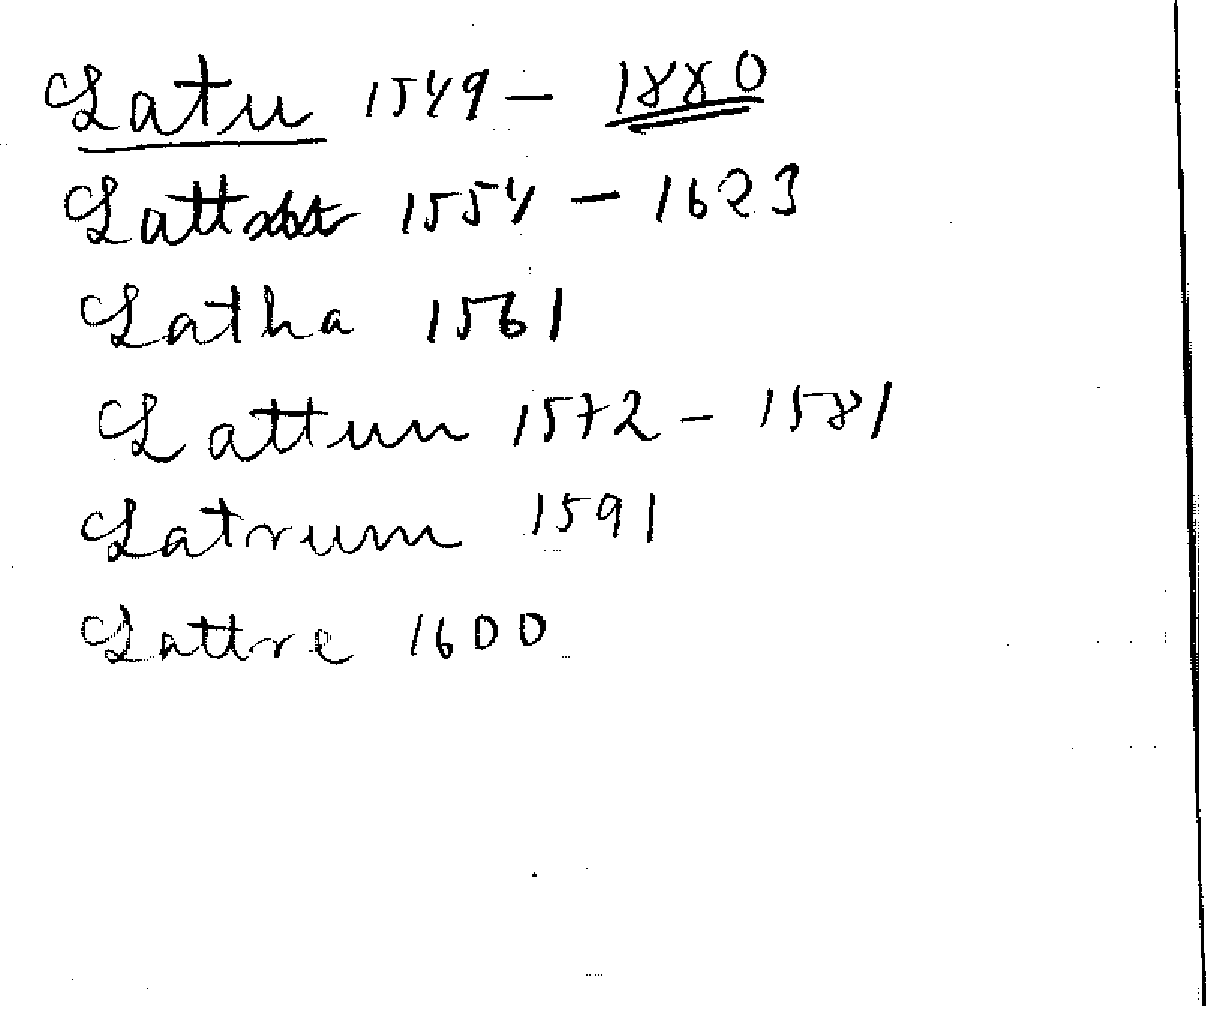 Latu 1549 – 1880
Latt 1554 – 1623
Latha 1561
Lattun 1572 – 1581
Latrum 1591
Lattre 1600